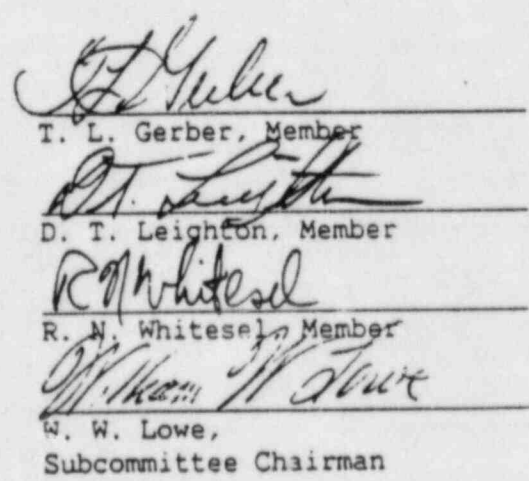 T L Gerber
T. L. Gerber, Member
D.T. Leighton
D. T. Leighton, Member
R N Whitesel
R. N. Whitesel, Member
William W Lowe
W. W. Lowe,
Subcommittee Chairman